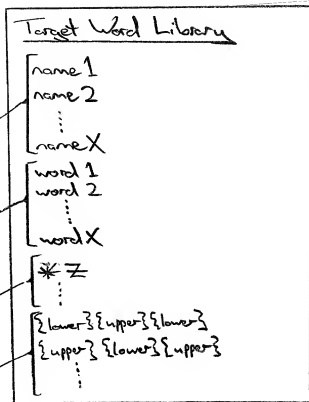 Target Word Library
name 1
name 2
⋮
name X
word 1
word 2
⋮
word X
* z
⋮
{lower}{upper}{lower}
{upper}{lower}{upper}
⋮